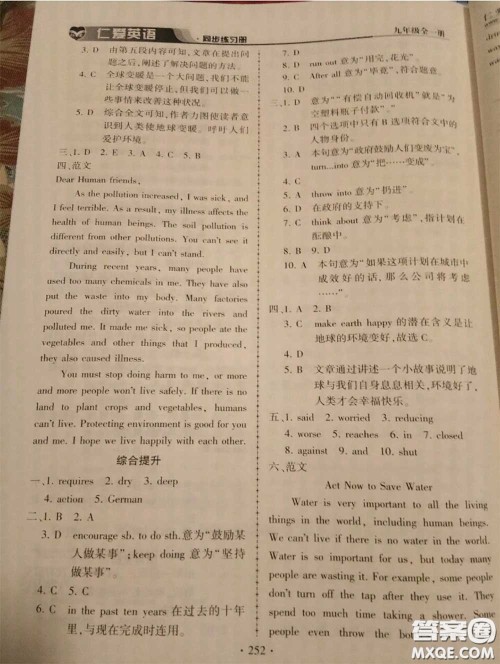 仁爱英语
·同步练习册
九年级全一册
3. D 由第五段内容可知，文章在提出问
题之后，阐述了解决问题的方法。
4. C 全球变暖是一个大问题，我们不能
使全球变暖停止，但我们可以做一
些事情来改善这种状况。
5. D 综合全文可知，作者力图使读者意
识到人类使地球变暖。呼吁人们
爱护环境。
三、1. D 2. E 3. A 4. C 5. B
四、范文
Dear Human friends,
As the pollution increased, I was sick, and
I feel terrible. As a result, my illness affects the
health of human beings. The soil pollution is
different from other pollutions. You can't see it
directly and easily, but I can't stand.
During recent years, many people have
used too many chemicals in me. They have also
put the waste into my body. Many factories
poured the dirty water into the rivers and
polluted me. It made me sick, so people ate the
vegetables and other things that I produced,
they also caused illness.
You must stop doing harm to me, or more
and more people won't live safely. If there is no
land to plant crops and vegetables, humans
can't live. Protecting environment is good for you
and me. I hope we live happily with each other.
综合提升
一、1. requires 2. dry 3. deep
4. action 5. German
二、1. B 2. A
3. D encourage sb. to do sth.意为“鼓励某
人做某事”；keep doing 意为“坚持
做某事”。
4. C 5. C
6. C in the past ten years 在过去的十年
里，与现在完成时连用。
7. D
8. D run out 意为“用完，花光”。
9. C After all 意为“毕竟”，符合题意。
三、1. D 意为“‘有偿自动回收机’就是‘为
空塑料瓶子付款’。”
2. B 四个选项中只有 B 选项符合文中的
人物身份。
3. A 本句意为“政府鼓励人们变废为宝”，
turn...into 意为“把……变成”。
4. C
5. A throw into 意为“扔进”。
6. D 在政府的支持下。
7. C think about 意为“考虑”，指计划在
酝酿中。
8. B 9. D
10. A 本句意为“如果这项计划在城市中
成效好的话，那么公司将考虑
……”
四、1. A 2. B
3. C make earth happy 的潜在含义是让
地球的环境变好，故选 C。
4. D
5. B 文章通过讲述一个小故事说明了地
球与我们自身息息相关，环境好了，
人类才会幸福快乐。
五、1. said 2. worried 3. reducing
4. worse 5. reaches 6. in 7. closed
8. against 9. and 10. such
六、范文
Act Now to Save Water
Water is very important to all the living
things in the world, including human beings.
We can't live if there is no water in the world.
Water is so important for us, but today many
people are wasting it. For example, some people
don't turn off the tap after they use it. They
spend too much time taking a shower. Some
people even throw the bottles
· 252 ·
答案圈
MXQE.COM